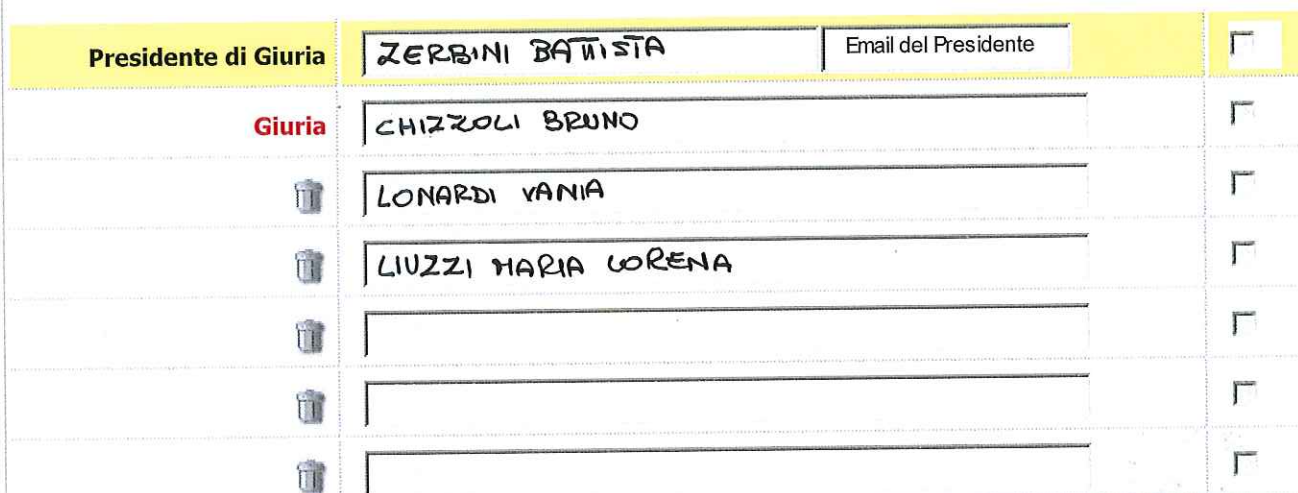 Presidente di Giuria ZERBINI BATTISTA Email del Presidente
Giuria CHIZZOLI BRUNO
LONARDI VANIA
LIUZZI MARIA LORENA